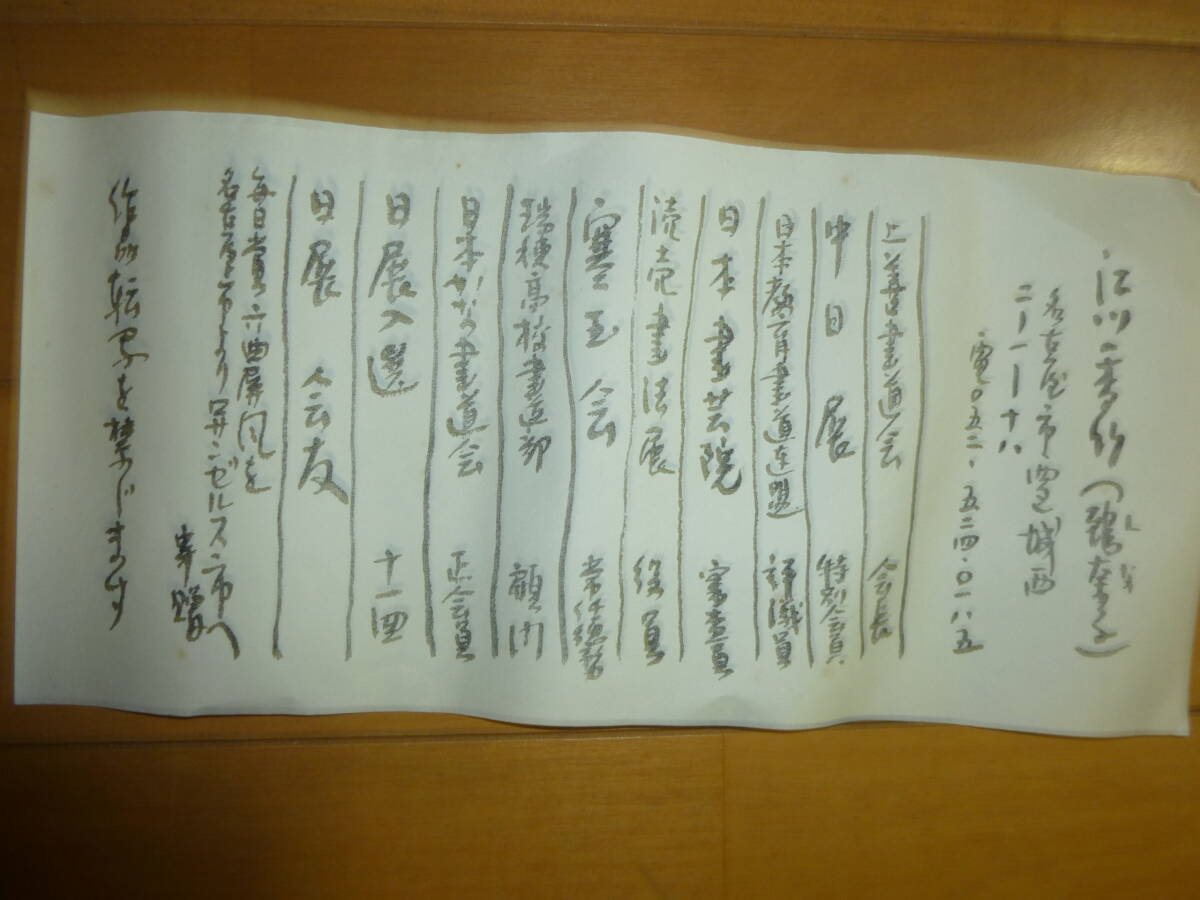 江川香竹(鶴奈子)
名古屋市西区城西
二ー一ー十八
電〇五二・五二四・〇一八五
上善書道会 会長
中日展 特別会員
日本教育書道連盟 評議員
日本書芸院 審査員
読売書法展 役員
寒玉会 常任総務
瑞穂高校書道部 顧問
日本かな書道会 正会員
日展入選 十一回
日展会友
毎日賞六曲屏風を
名古屋市よりロサンゼルス市へ
寄贈
作品転写を禁じます